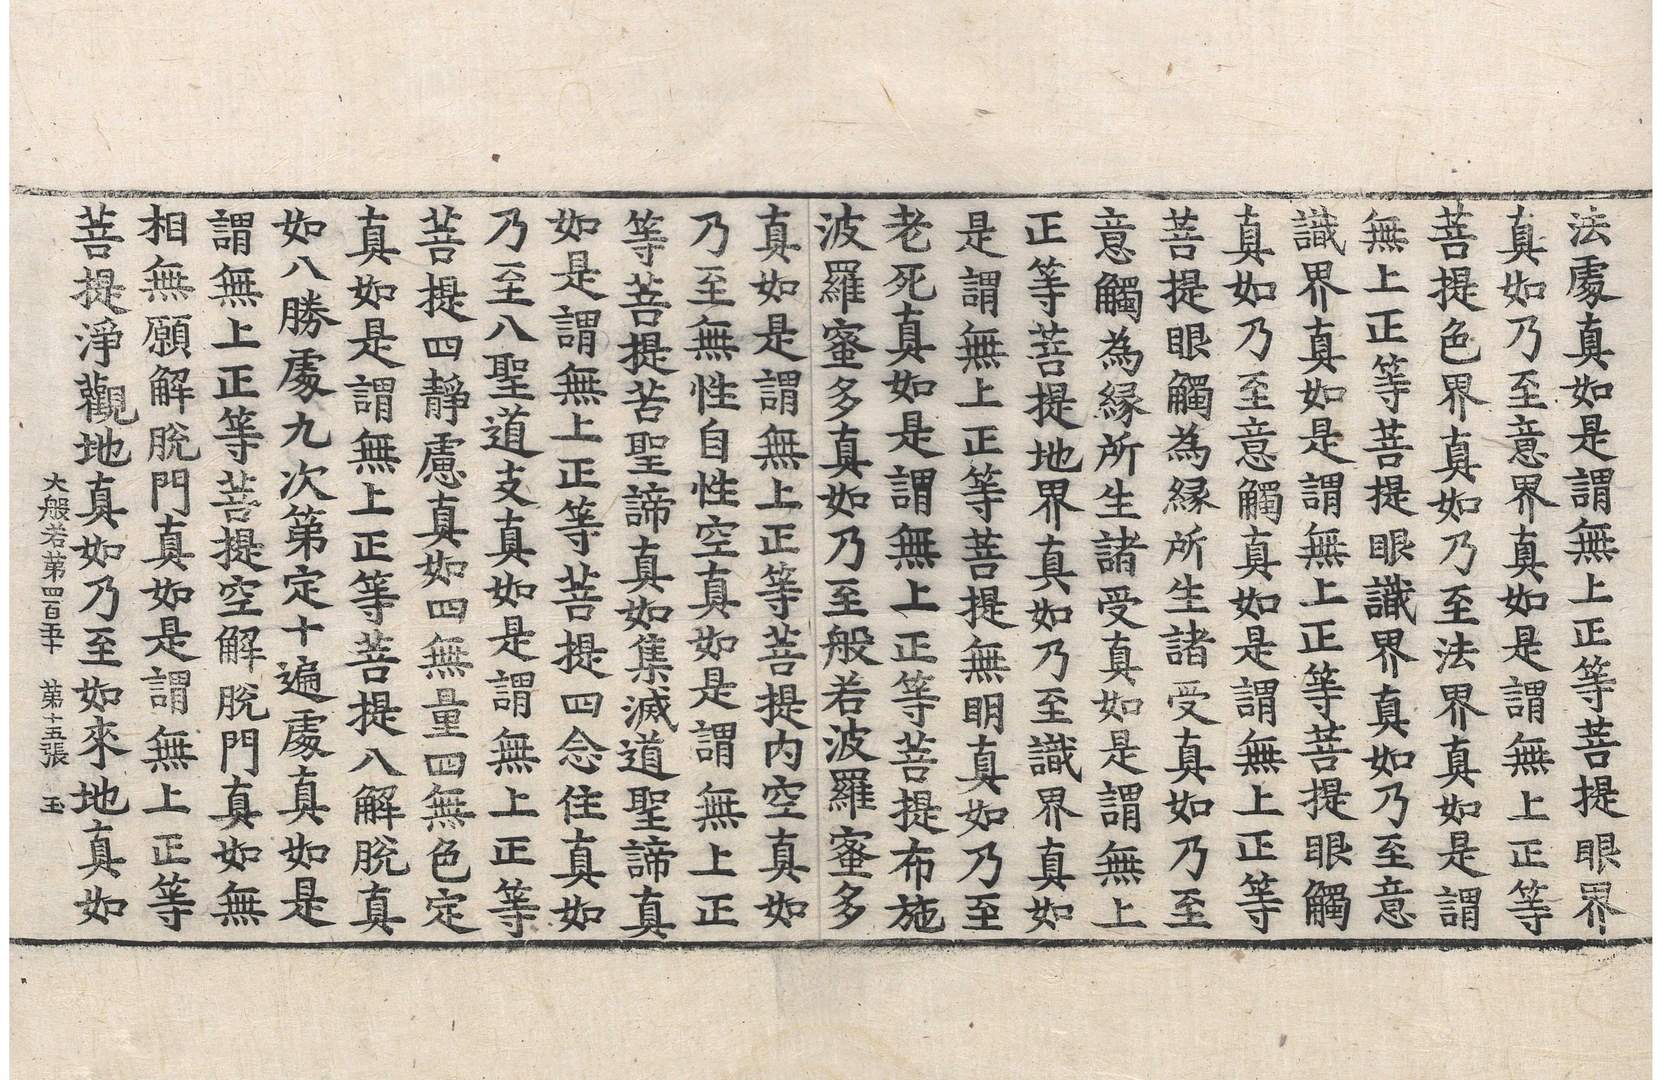 法處真如是謂無上正等菩提眼界
真如乃至意界真如是謂無上正等
菩提色界真如乃至法界真如是謂
無上正等菩提眼識界真如乃至意
識界真如是謂無上正等菩提眼觸
真如乃至意觸真如是謂無上正等
菩提眼觸為緣所生諸受真如乃至
意觸為緣所生諸受真如是謂無上
正等菩提地界真如乃至識界真如
是謂無上正等菩提無明真如乃至
老死真如是謂無上正等菩提布施
波羅蜜多真如乃至般若波羅蜜多
真如是謂無上正等菩提內空真如
乃至無性自性空真如是謂無上正
等菩提苦聖諦真如集滅道聖諦真
如是謂無上正等菩提四念住真如
乃至八聖道支真如是謂無上正等
菩提四靜慮真如四無量四無色定
真如是謂無上正等菩提八解脫真
如八勝處九次第定十遍處真如是
謂無上正等菩提空解脫門真如無
相無願解脫門真如是謂無上正等
菩提淨觀地真如乃至如來地真如
大般若第四百五十 第十五張 玉